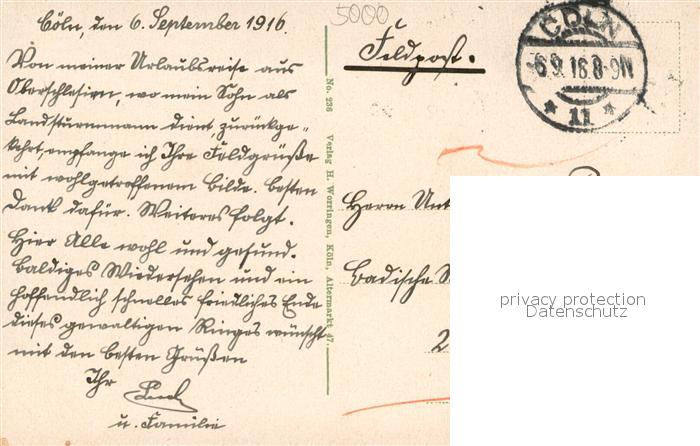 Cöln, den 6. September 1916.
Von meiner Urlaubsreise aus
Oberschlesien, wo mein Sohn als
Landsturmmann dient, zurückge-
kehrt, empfange ich Ihre Feldgrüße
mit wohlgetroffenem Bilde. Besten
Dank dafür. Weiteres folgt.
Hier Alle wohl und gesund.
Baldiges Wiedersehen und ein
hoffendlich schnelles friedliches Ende
dieses gewaltigen Ringes wünscht
mit den besten Grüßen
Ihr
u. Familie
No. 236 Verlag H. Worringen, Köln, Altermarkt 47.
5000
Feldpost.
CÖLN
6.9.16.8-9N
* 11 *
Herrn Unt
Badische
2
privacy protection
Datenschutz